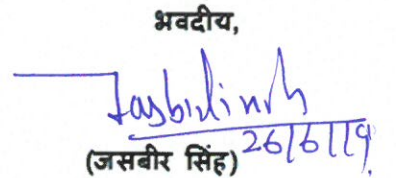 भवदीय,
Jasbirsinh
26/6/19
(जसबीर सिंह)